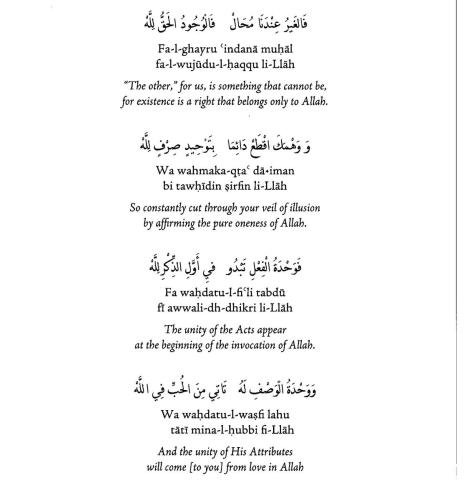 فَالغَيرُ عِنْدَنَا مُحَالْ فَالوُجُودُ الحَقُّ لِلَّهْ
Fa-l-ghayru ʿindanā muḥāl
fa-l-wujūdu-l-ḥaqqu li-Llāh
“The other,” for us, is something that cannot be,
for existence is a right that belongs only to Allah.
وَ وَهْمَكَ اقْطَعْ دَائِمَا بِتَوْحِيدٍ صِرْفٍ لِلَّهْ
Wa wahmaka-qṭaʿ dā•iman
bi tawḥīdin ṣirfin li-Llāh
So constantly cut through your veil of illusion
by affirming the pure oneness of Allah.
فَوَحْدَةُ الْفِعْلِ تَبْدُو فيِ أَوَّلِ الذِّكْرِ لِلَّهْ
Fa waḥdatu-l-fiʿli tabdū
fī awwali-dh-dhikri li-Llāh
The unity of the Acts appear
at the beginning of the invocation of Allah.
وَوَحْدَةُ الْوَصْفِ لَهُ تَاتِي مِنَ الْحُبِّ فِي اللَّهْ
Wa waḥdatu-l-waṣfi lahu
tātī mina-l-ḥubbi fi-Llāh
And the unity of His Attributes
will come [to you] from love in Allah